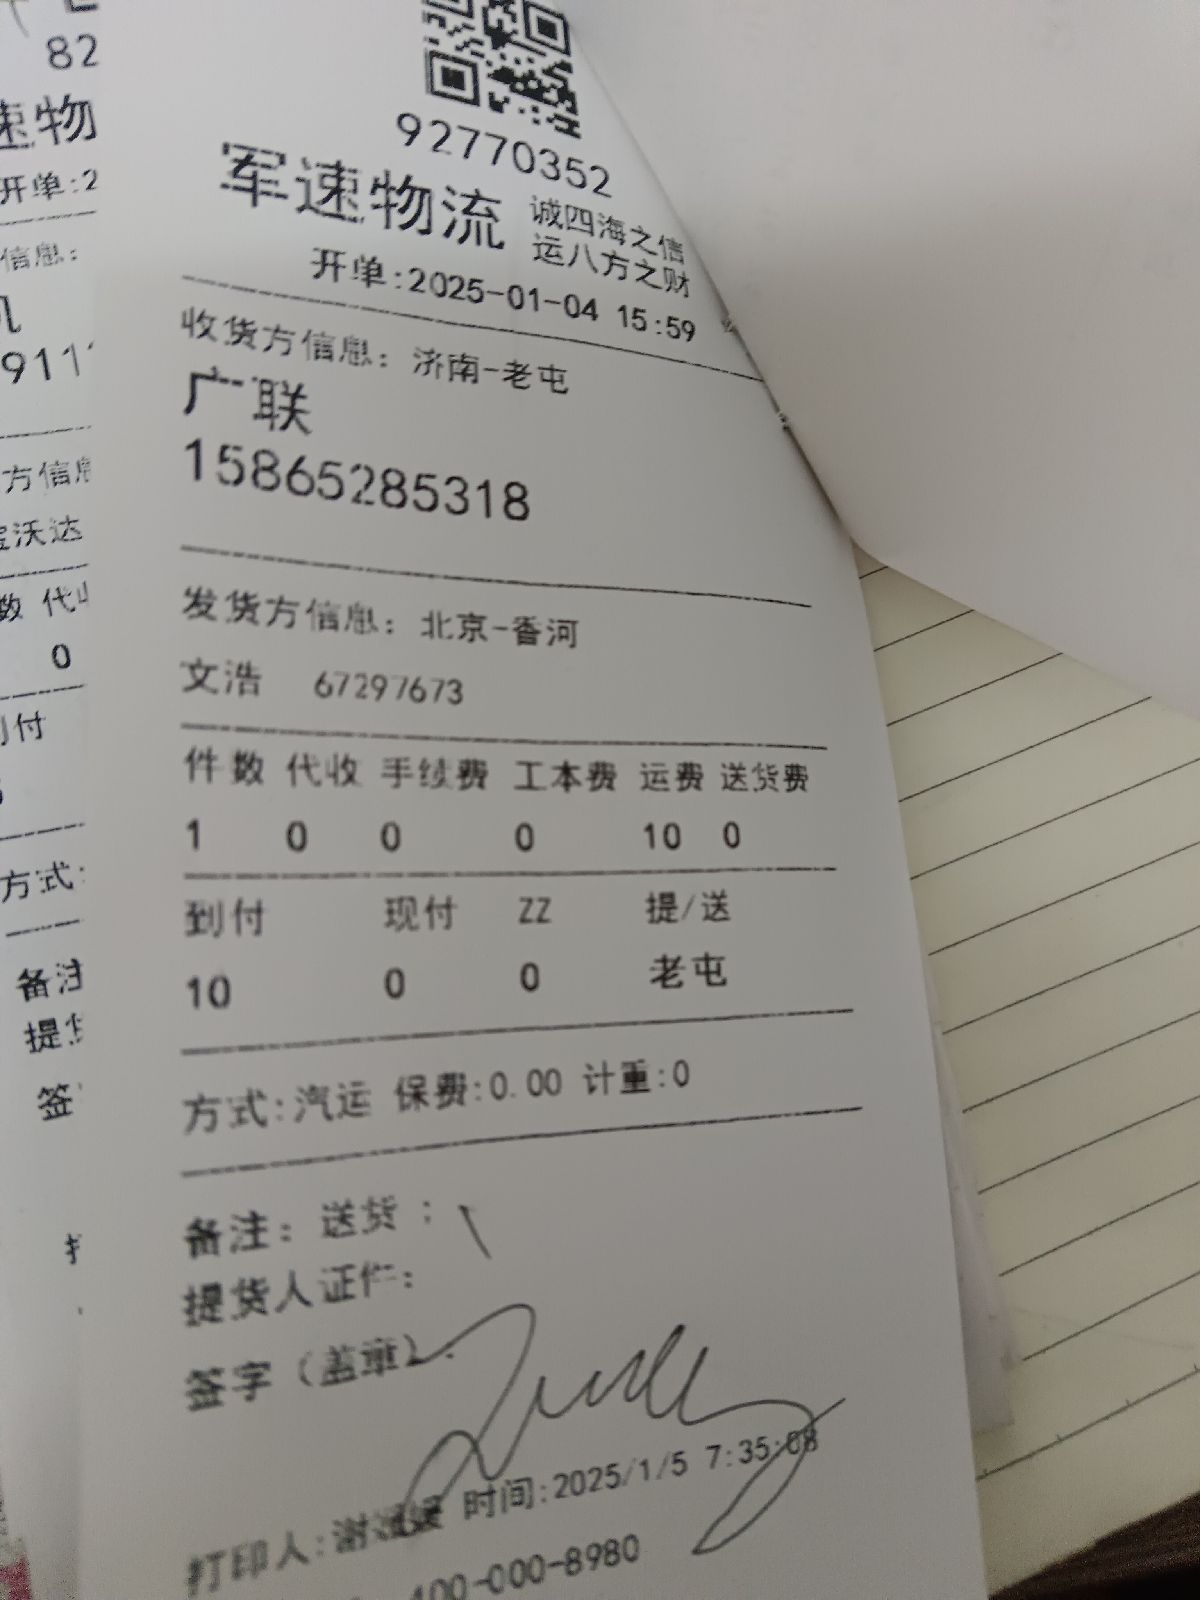 92770352
军速物流 诚四海之信
运八方之财
开单:2025-01-04 15:59
收货方信息: 济南-老屯
广联
15865285318
发货方信息: 北京-香河
文浩 67297673
件数 代收 手续费 工本费 运费 送货费
1 0 0 0 10 0
到付 现付 ZZ 提/送
10 0 0 老屯
方式:汽运 保费:0.00 计重:0
备注: 送货 :
提货人证件:
签字（盖章）:
打印人:谢 时间:2025/1/5 7:35:08
400-000-8980
82
速物
开单:2
信息:
机
9111
方信息
沃达
数 代收
0
到付
方式:
备注
提货
签